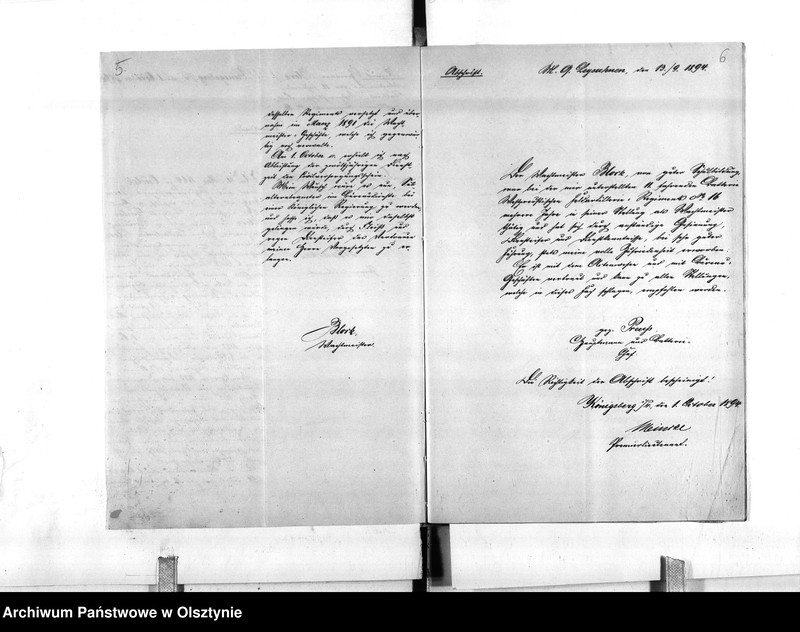 5.
desselben Regiments versetzt und über-
nahm im März 1891 die Wacht-
meister-Geschäfte, welche ich gegenwär-
tig noch verwalte.
Am 1. October erhielt ich nach
Ableistung der zwölfjährigen Dienst-
zeit den Civilversorgungsschein.
Mein Wunsch wäre es nun, Su-
pernumerar im Bureaudienste bei
einer Königlichen Regierung zu werden
und hoffe ich, daß es mir daselbst
gelingen würde, durch Fleiß und
regen Diensteifer das Vertrauen
meiner Herren Vorgesetzten zu er-
langen.
Block,
Wachtmeister.
6
Abschrift.
den 13./9. 1894.
Der Wachtmeister Block, von guter Schulbildung,
war bei der mir unterstellten 11. fahrenden Batterie
Westpreußischen Feldartillerie-Regiments No 16
mehrere Jahre in seiner Stellung als Wachtmeister
thätig und hat sich durch anständige Gesinnung,
Diensteifer und Dienstkenntnisse, bei sehr guter
Führung, stets meine volle Zufriedenheit erworben.
Er ist mit dem Aktenwesen und mit Büreau-
Geschäften vertraut und kann zu allen Stellungen,
welche in dieses Fach schlagen, empfohlen werden.
gez. Preuß,
Hauptmann und Batterie-
Chef.
Die Richtigkeit der Abschrift bescheinigt!
Königsberg i/Pr. den 1. October 1894.
Premierlieutenant.
Archiwum Państwowe w Olsztynie